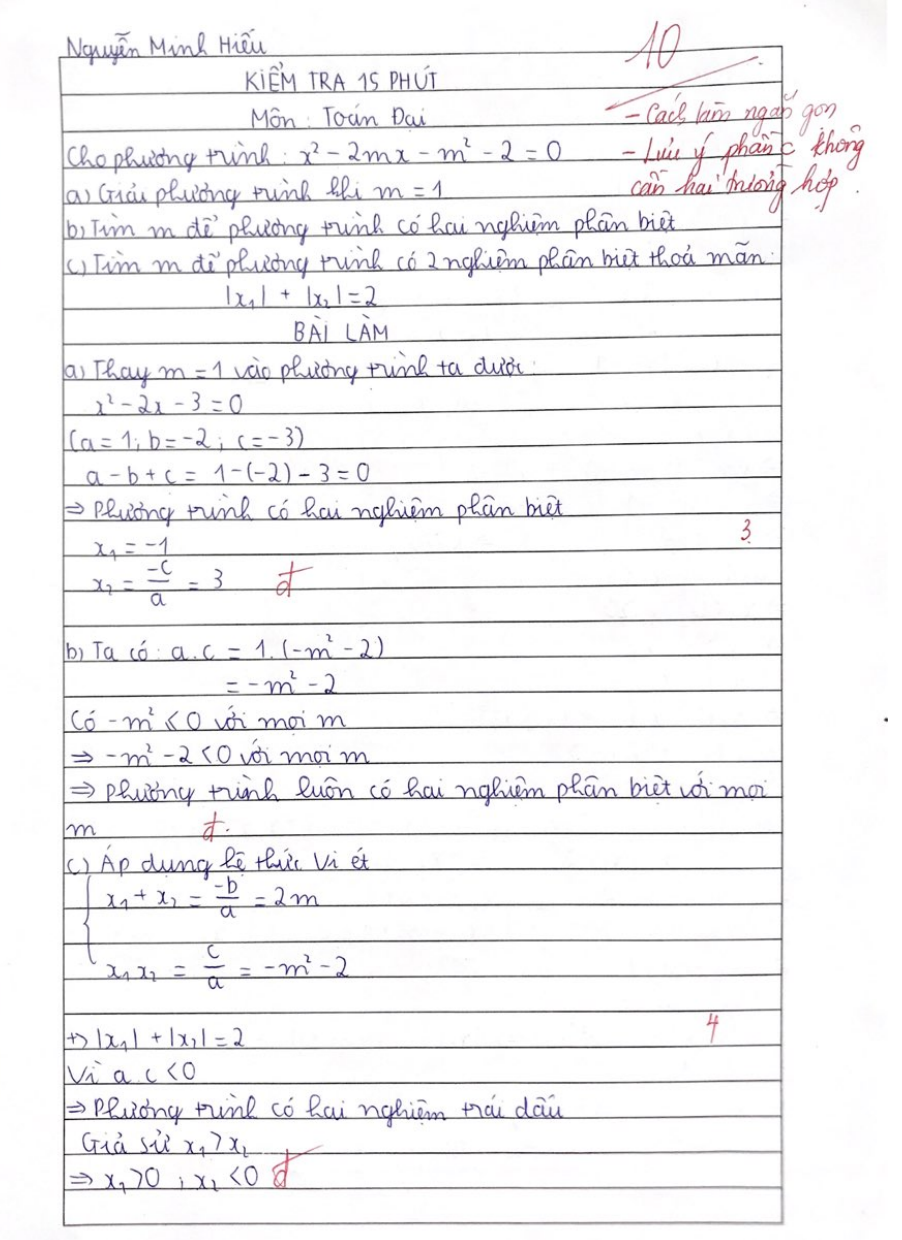 Nguyễn Minh Hiếu
10
KIỂM TRA 15 PHÚT
Môn : Toán Đại
- Cách làm ngắn gọn
- Lưu ý phần c không
cần hai trường hợp.
Cho phương trình : x² - 2mx - m² - 2 = 0
a) Giải phương trình khi m = 1
b) Tìm m để phương trình có hai nghiệm phân biệt
c) Tìm m để phương trình có 2 nghiệm phân biệt thoả mãn:
|x₁| + |x₂| = 2
BÀI LÀM
a) Thay m = 1 vào phương trình ta được:
x² - 2x - 3 = 0
(a = 1; b = -2 ; c = -3)
a - b + c = 1 - (-2) - 3 = 0
⇒ Phương trình có hai nghiệm phân biệt
3
x₁ = -1
x₂ = -c/a = 3 đ
b) Ta có : a.c = 1.(-m² - 2)
= -m² - 2
Có -m² < 0 với mọi m
⇒ -m² - 2 < 0 với mọi m
⇒ phương trình luôn có hai nghiệm phân biệt với mọi
m đ.
c) Áp dụng hệ thức Vi ét
x₁ + x₂ = -b/a = 2m
x₁x₂ = c/a = -m² - 2
4
+) |x₁| + |x₂| = 2
Vì a.c < 0
⇒ Phương trình có hai nghiệm trái dấu
Giả sử x₁ > x₂
⇒ x₁ > 0 ; x₂ < 0 đ